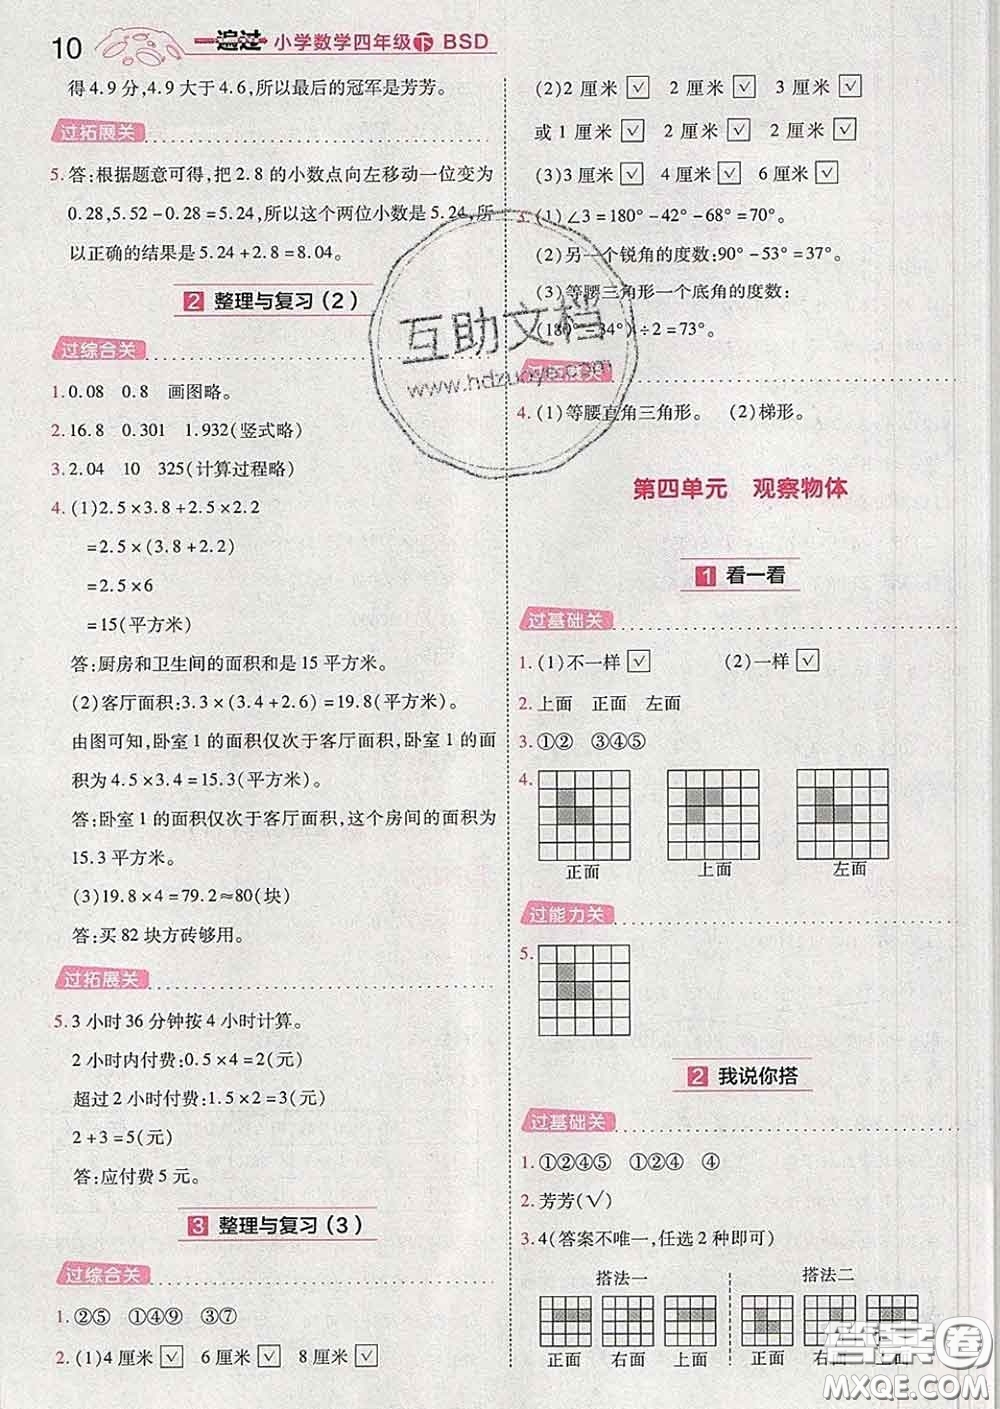 10 一遍过 小学数学四年级下 BSD
得4.9分,4.9大于4.6,所以最后的冠军是芳芳。
过拓展关
5.答:根据题意可得,把2.8的小数点向左移动一位变为
0.28,5.52-0.28=5.24,所以这个两位小数是5.24,所
以正确的结果是5.24+2.8=8.04。
2 整理与复习(2)
过综合关
1.0.08 0.8 画图略。
2.16.8 0.301 1.932(竖式略)
3.2.04 10 325(计算过程略)
4.(1)2.5×3.8+2.5×2.2
=2.5×(3.8+2.2)
=2.5×6
=15(平方米)
答:厨房和卫生间的面积和是15平方米。
(2)客厅面积:3.3×(3.4+2.6)=19.8(平方米)。
由图可知,卧室1的面积仅次于客厅面积,卧室1的面
积为4.5×3.4=15.3(平方米)。
答:卧室1的面积仅次于客厅面积,这个房间的面积为
15.3平方米。
(3)19.8×4=79.2≈80(块)
答:买82块方砖够用。
过拓展关
5.3小时36分钟按4小时计算。
2小时内付费:0.5×4=2(元)
超过2小时付费:1.5×2=3(元)
2+3=5(元)
答:应付费5元。
3 整理与复习(3)
过综合关
1.②⑤ ①④⑨ ③⑦
2.(1)4厘米 √ 6厘米 √ 8厘米 √
(2)2厘米 √ 2厘米 √ 3厘米 √
或1厘米 √ 2厘米 √ 2厘米 √
(3)3厘米 √ 4厘米 √ 6厘米 √
3.(1)∠3=180°-42°-68°=70°。
(2)另一个锐角的度数:90°-53°=37°。
(3)等腰三角形一个底角的度数:
(180°-34°)÷2=73°。
过拓展关
4.(1)等腰直角三角形。 (2)梯形。
第四单元 观察物体
1 看一看
过基础关
1.(1)不一样 √ (2)一样 √
2.上面 正面 左面
3.①② ③④⑤
4.
正面 上面 左面
过能力关
5.
2 我说你搭
过基础关
1.①②④⑤ ①②④ ④
2.芳芳(√)
3.4(答案不唯一,任选2种即可)
搭法一 搭法二
正面 右面 上面 正面 右面 上面
互助文档
www.hdzuoye.com
答案圈
MXQE.COM